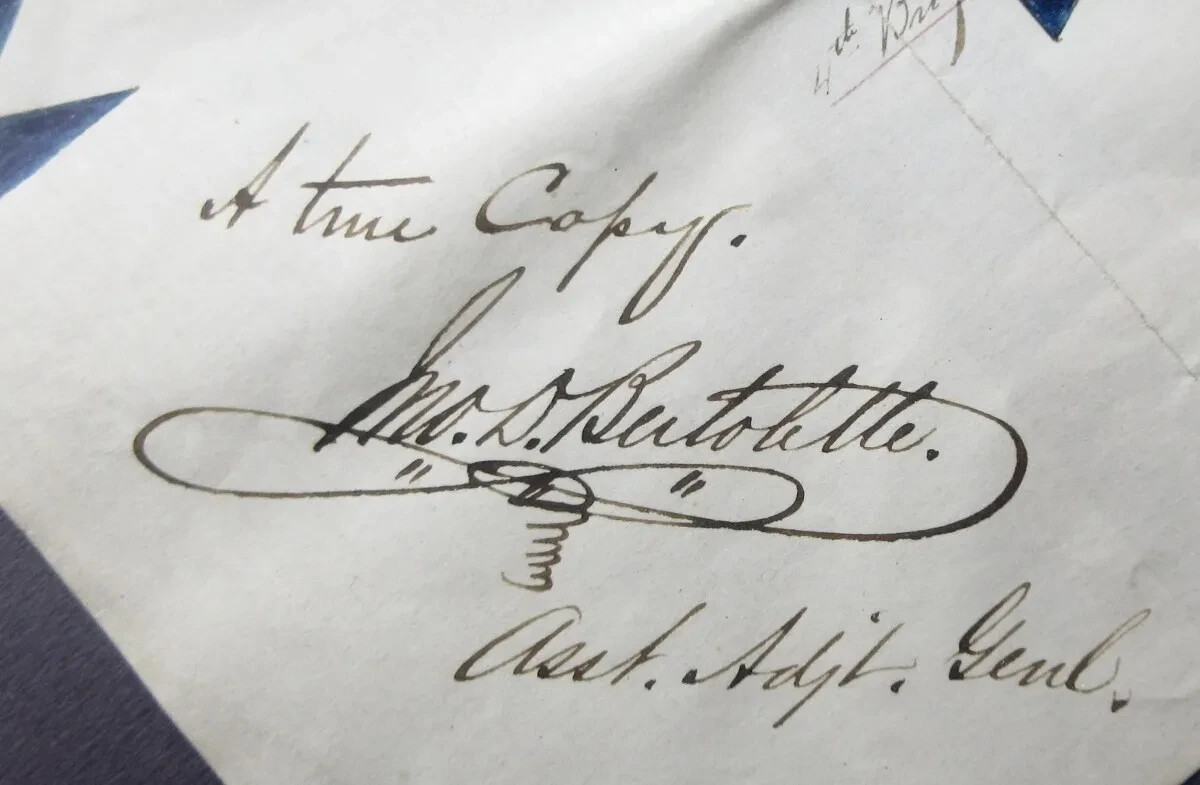 4th
A true Copy.
Jno. D. Bertolette.
Asst. Adjt. Genl.